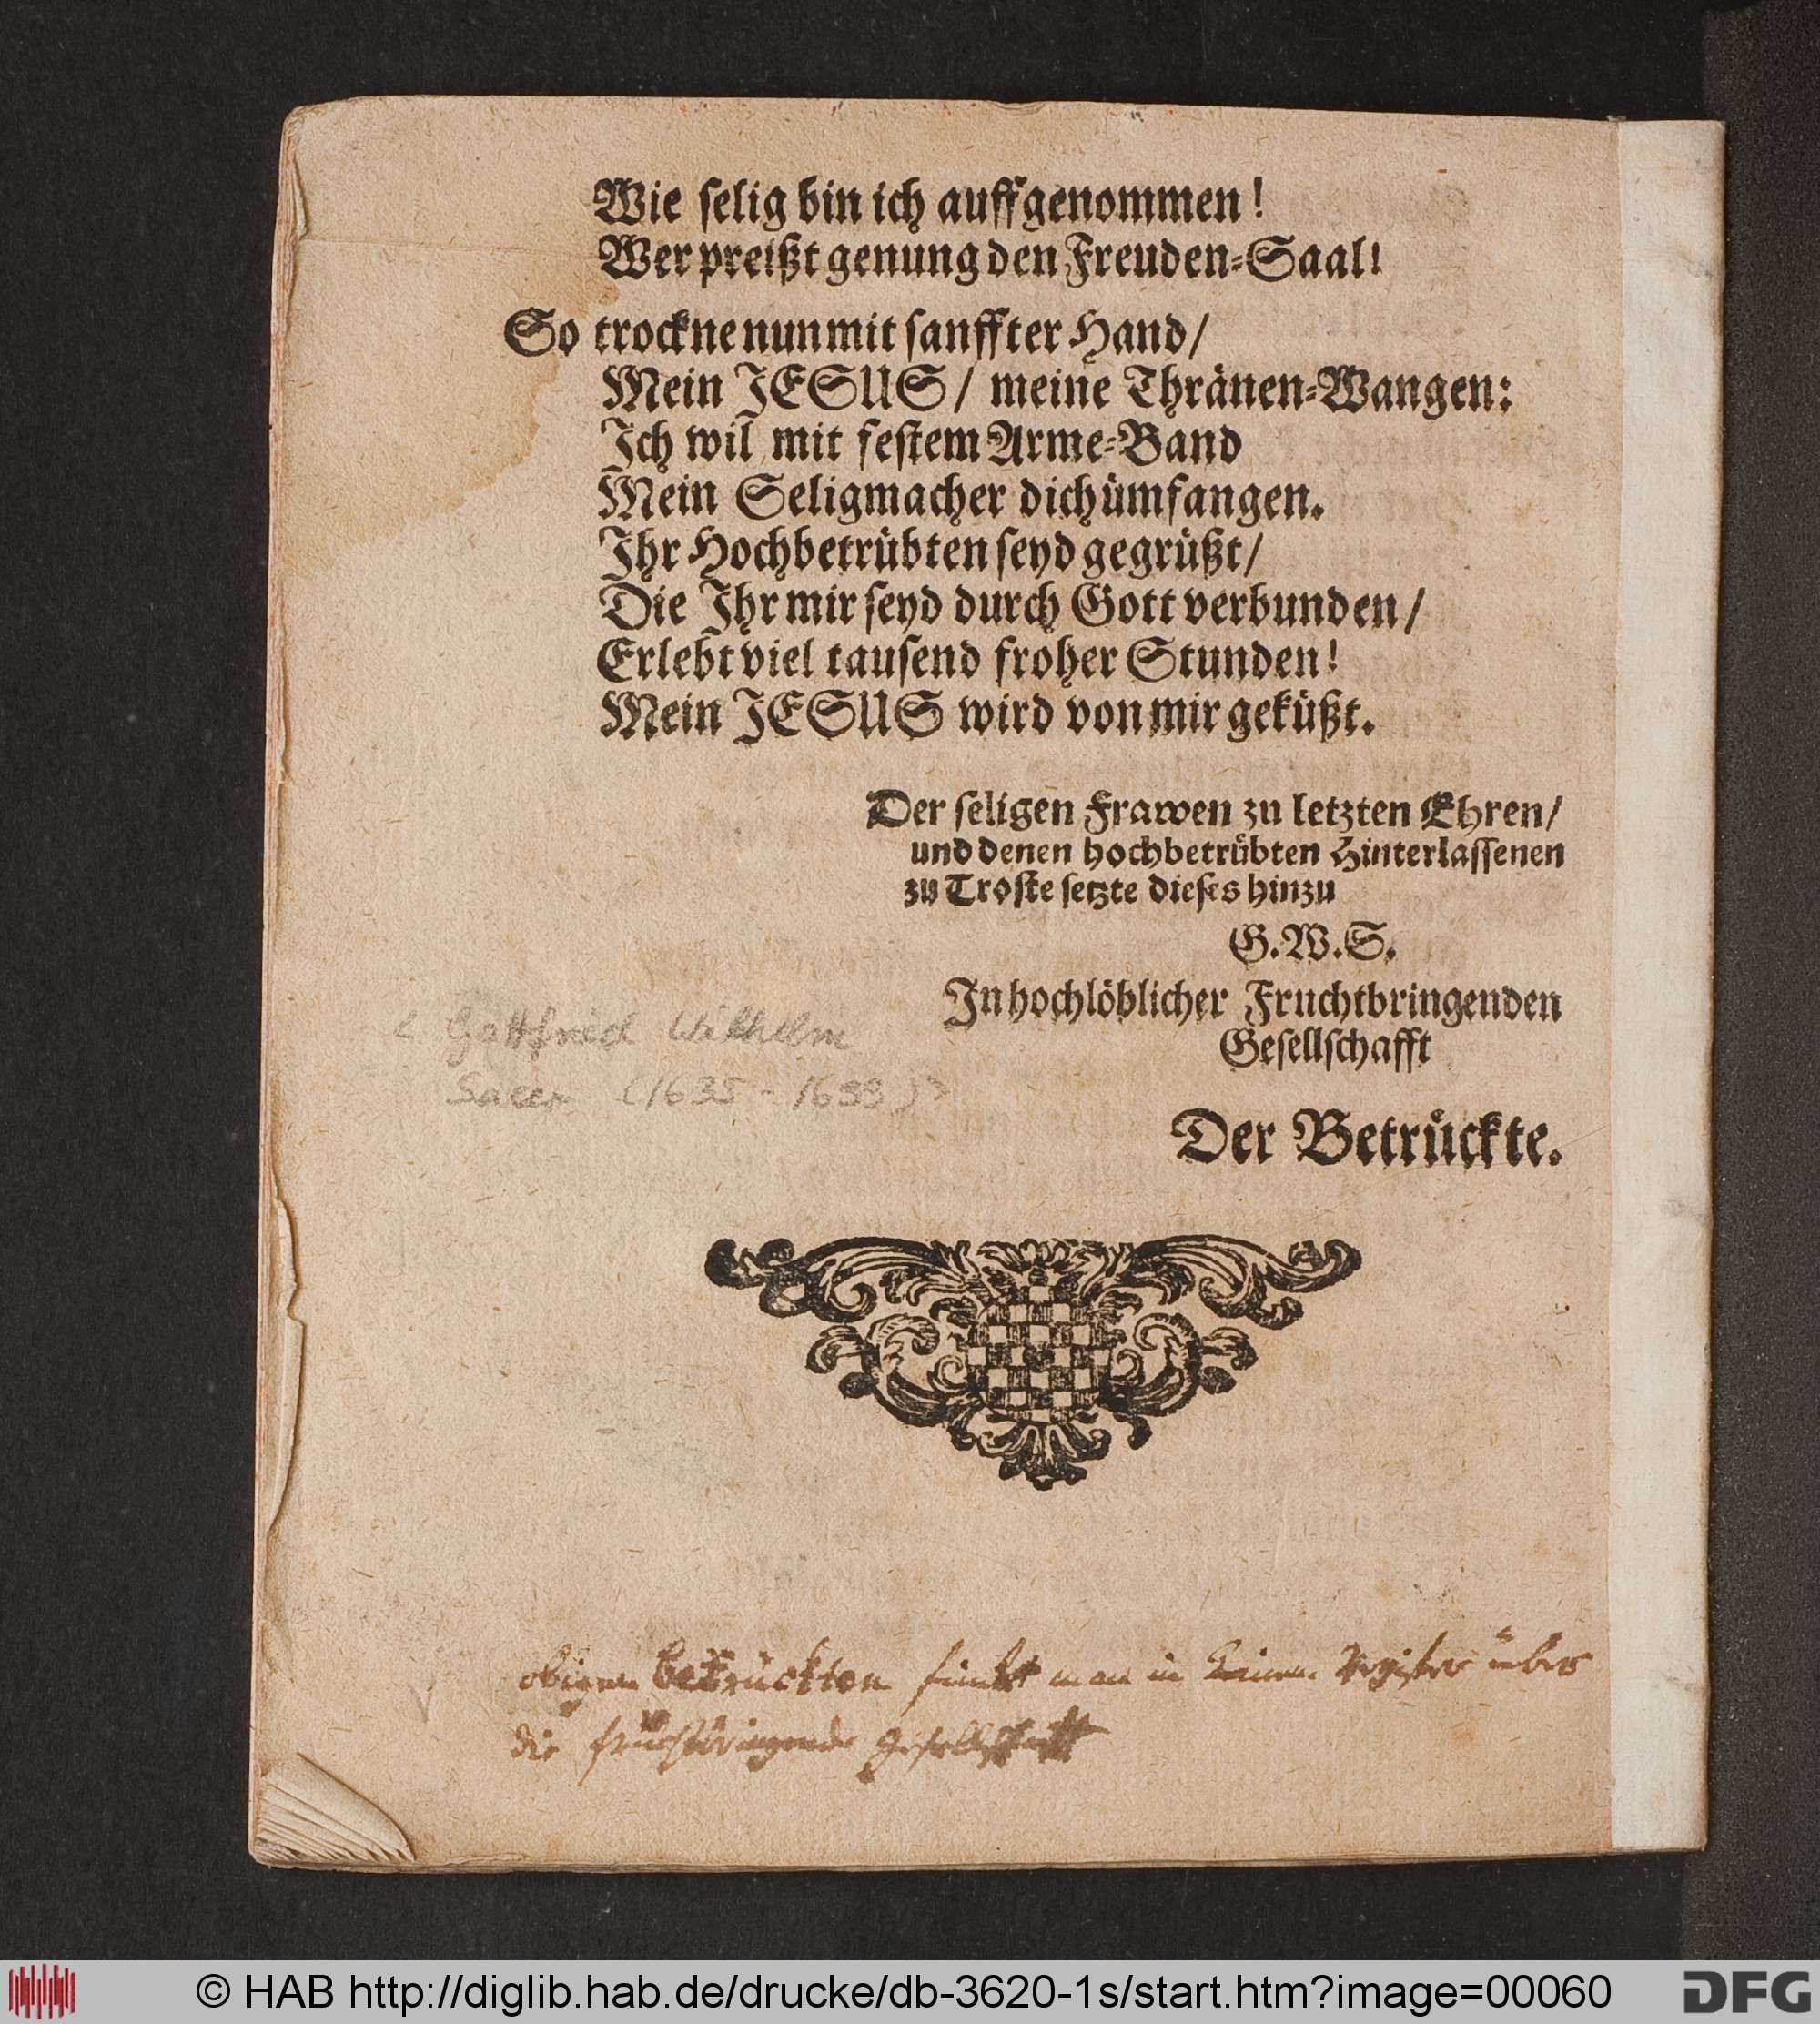 Wie selig bin ich auffgenommen!
Wer preißt genung den Freuden-Saal!
So trockne nun mit sanffter Hand/
Mein JESUS/ meine Thränen-Wangen:
Ich wil mit festem Arme-Band
Mein Seligmacher dich ümfangen.
Ihr Hochbetrübten seyd gegrüßt/
Die Ihr mir seyd durch Gott verbunden/
Erlebt viel tausend froher Stunden!
Mein JESUS wird von mir geküßt.
Der seligen Frawen zu letzten Ehren/
und denen hochbetrübten Hinterlassenen
zu Troste setzte dieses hinzu
G.W.S.
In hochlöblicher Fruchtbringenden
Gesellschafft
< Gottfried Wilhelm
Sacer (1635-1699)>
Der Betrückte.
obigen Betrückten findt man in keinem Register über
die fruchtbringende Gesellschafft
© HAB http://diglib.hab.de/drucke/db-3620-1s/start.htm?image=00060
DFG